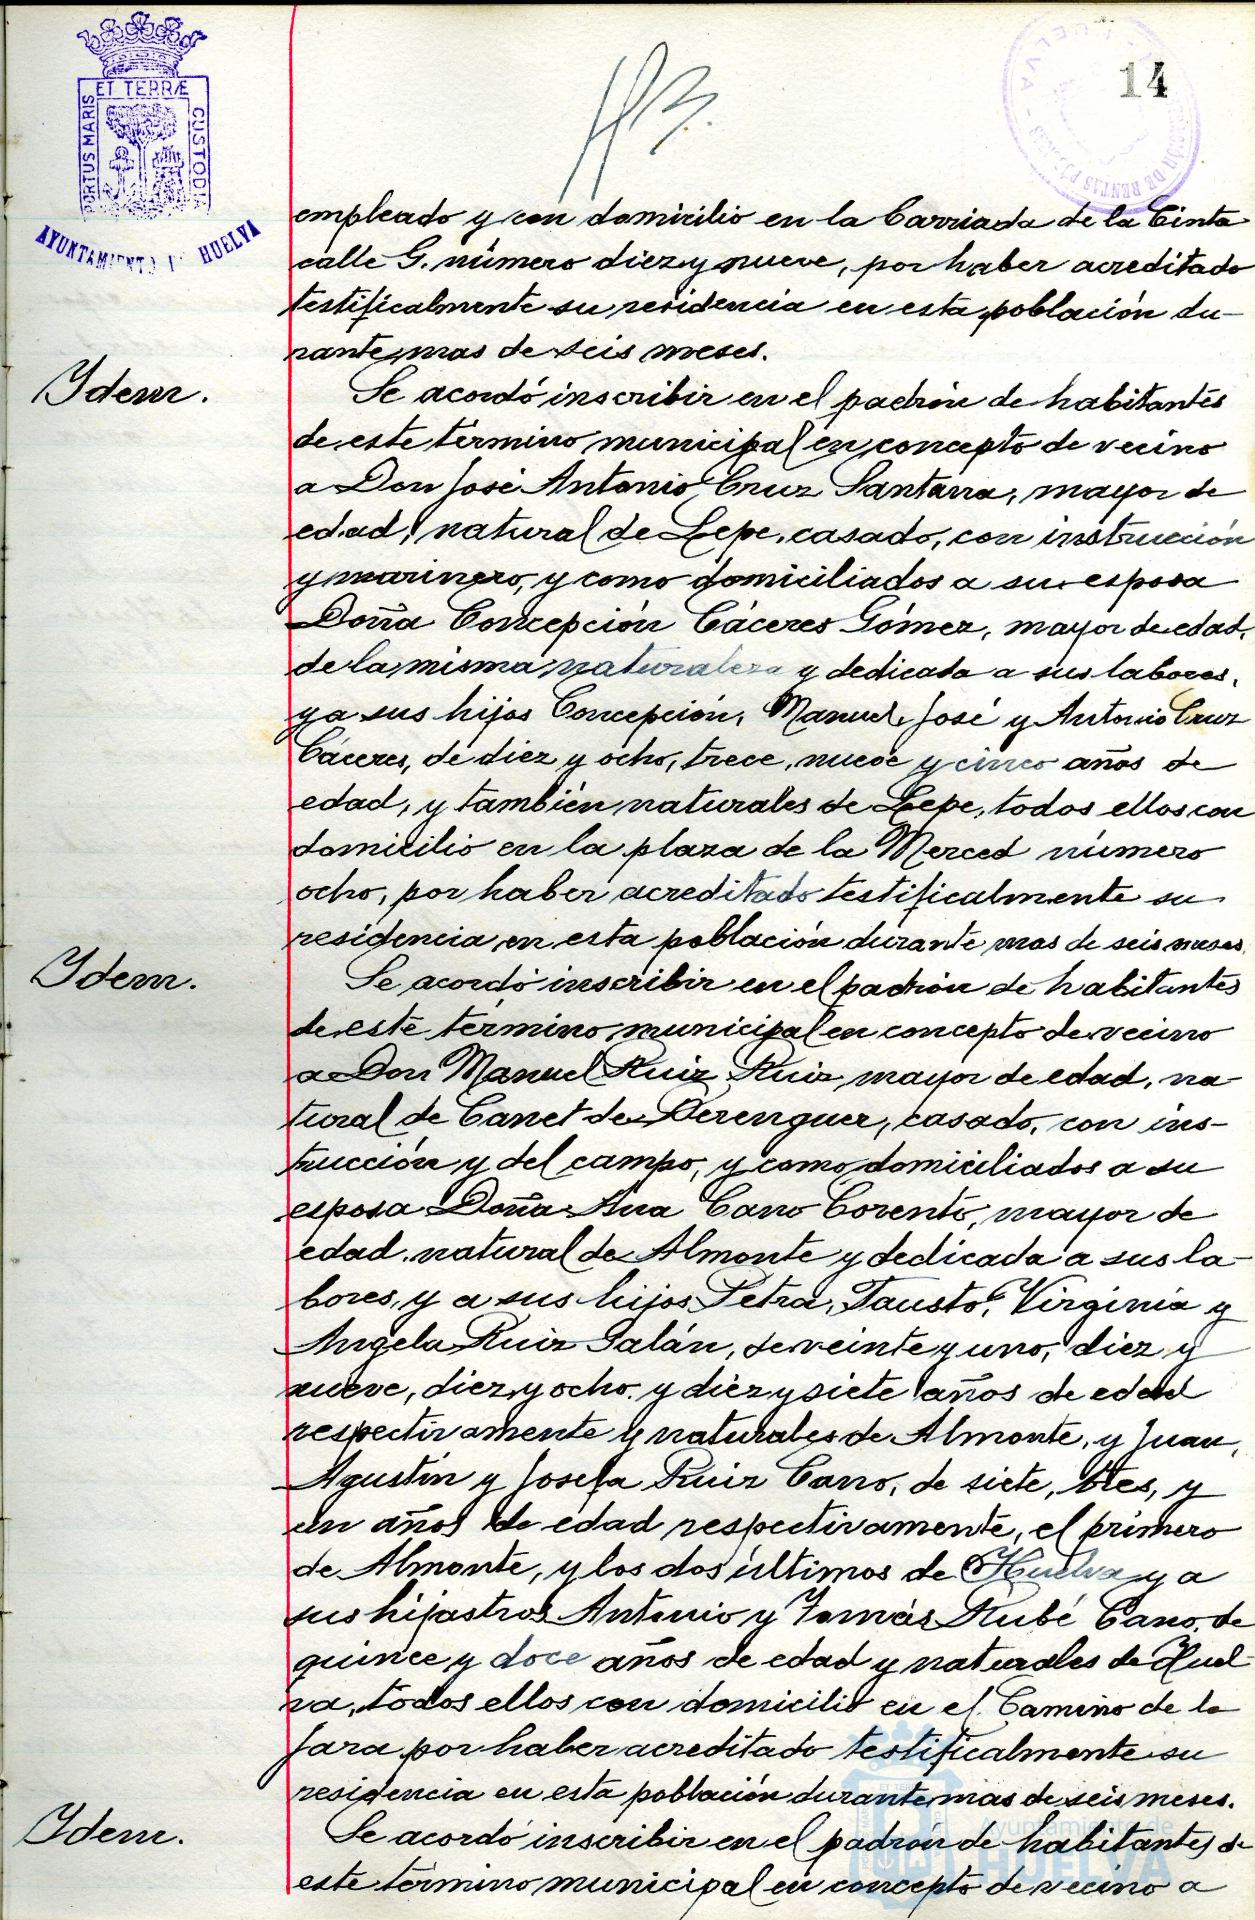 14
ET TERRÆ
PORTUS MARIS
CUSTODIA
AYUNTAMIENTO DE HUELVA
empleado y con domicilio en la Barriada de la Cinta
calle G. número diez y nueve, por haber acreditado
testificalmente su residencia en esta población du-
rante mas de seis meses.
Ydem.
Se acordó inscribir en el padrón de habitantes
de este término municipal en concepto de vecino
a Don José Antonio Cruz Santana, mayor de
edad, natural de Lepe, casado, con instrucción
y marinero, y como domiciliados a su esposa
Doña Concepción Cáceres Gómez, mayor de edad,
de la misma naturaleza y dedicada a sus labores,
y a sus hijos Concepción, Manuel, José y Antonio Cruz
Cáceres, de diez y ocho, trece, nueve y cinco años de
edad, y también naturales de Lepe, todos ellos con
domicilio en la plaza de la Merced número
ocho, por haber acreditado testificalmente su
residencia en esta población durante mas de seis meses.
Ydem.
Se acordó inscribir en el padrón de habitantes
de este término municipal en concepto de vecino
a Don Manuel Ruiz Ruiz, mayor de edad, na-
tural de Canet de Berenguer, casado, con ins-
trucción y del campo, y como domiciliados a su
esposa Doña Ana Cano Corento, mayor de
edad, natural de Almonte y dedicada a sus la-
bores, y a sus hijos Petra, Fausto, Virginia y
Angela Ruiz Galán, de veinte y uno, diez y
nueve, diez y ocho y diez y siete años de edad
respectivamente y naturales de Almonte, y Juan,
Agustín y Josefa Ruiz Cano, de siete, tres, y
un años de edad respectivamente, el primero
de Almonte, y los dos últimos de Huelva y a
sus hijastros Antonio y Tomás Rubé Cano, de
quince y doce años de edad y naturales de Huel-
va, todos ellos con domicilio en el Camino de la
Jara por haber acreditado testificalmente su
residencia en esta población durante mas de seis meses.
Ydem.
Se acordó inscribir en el padrón de habitantes de
este término municipal en concepto de vecino a
Ayuntamiento de
HUELVA